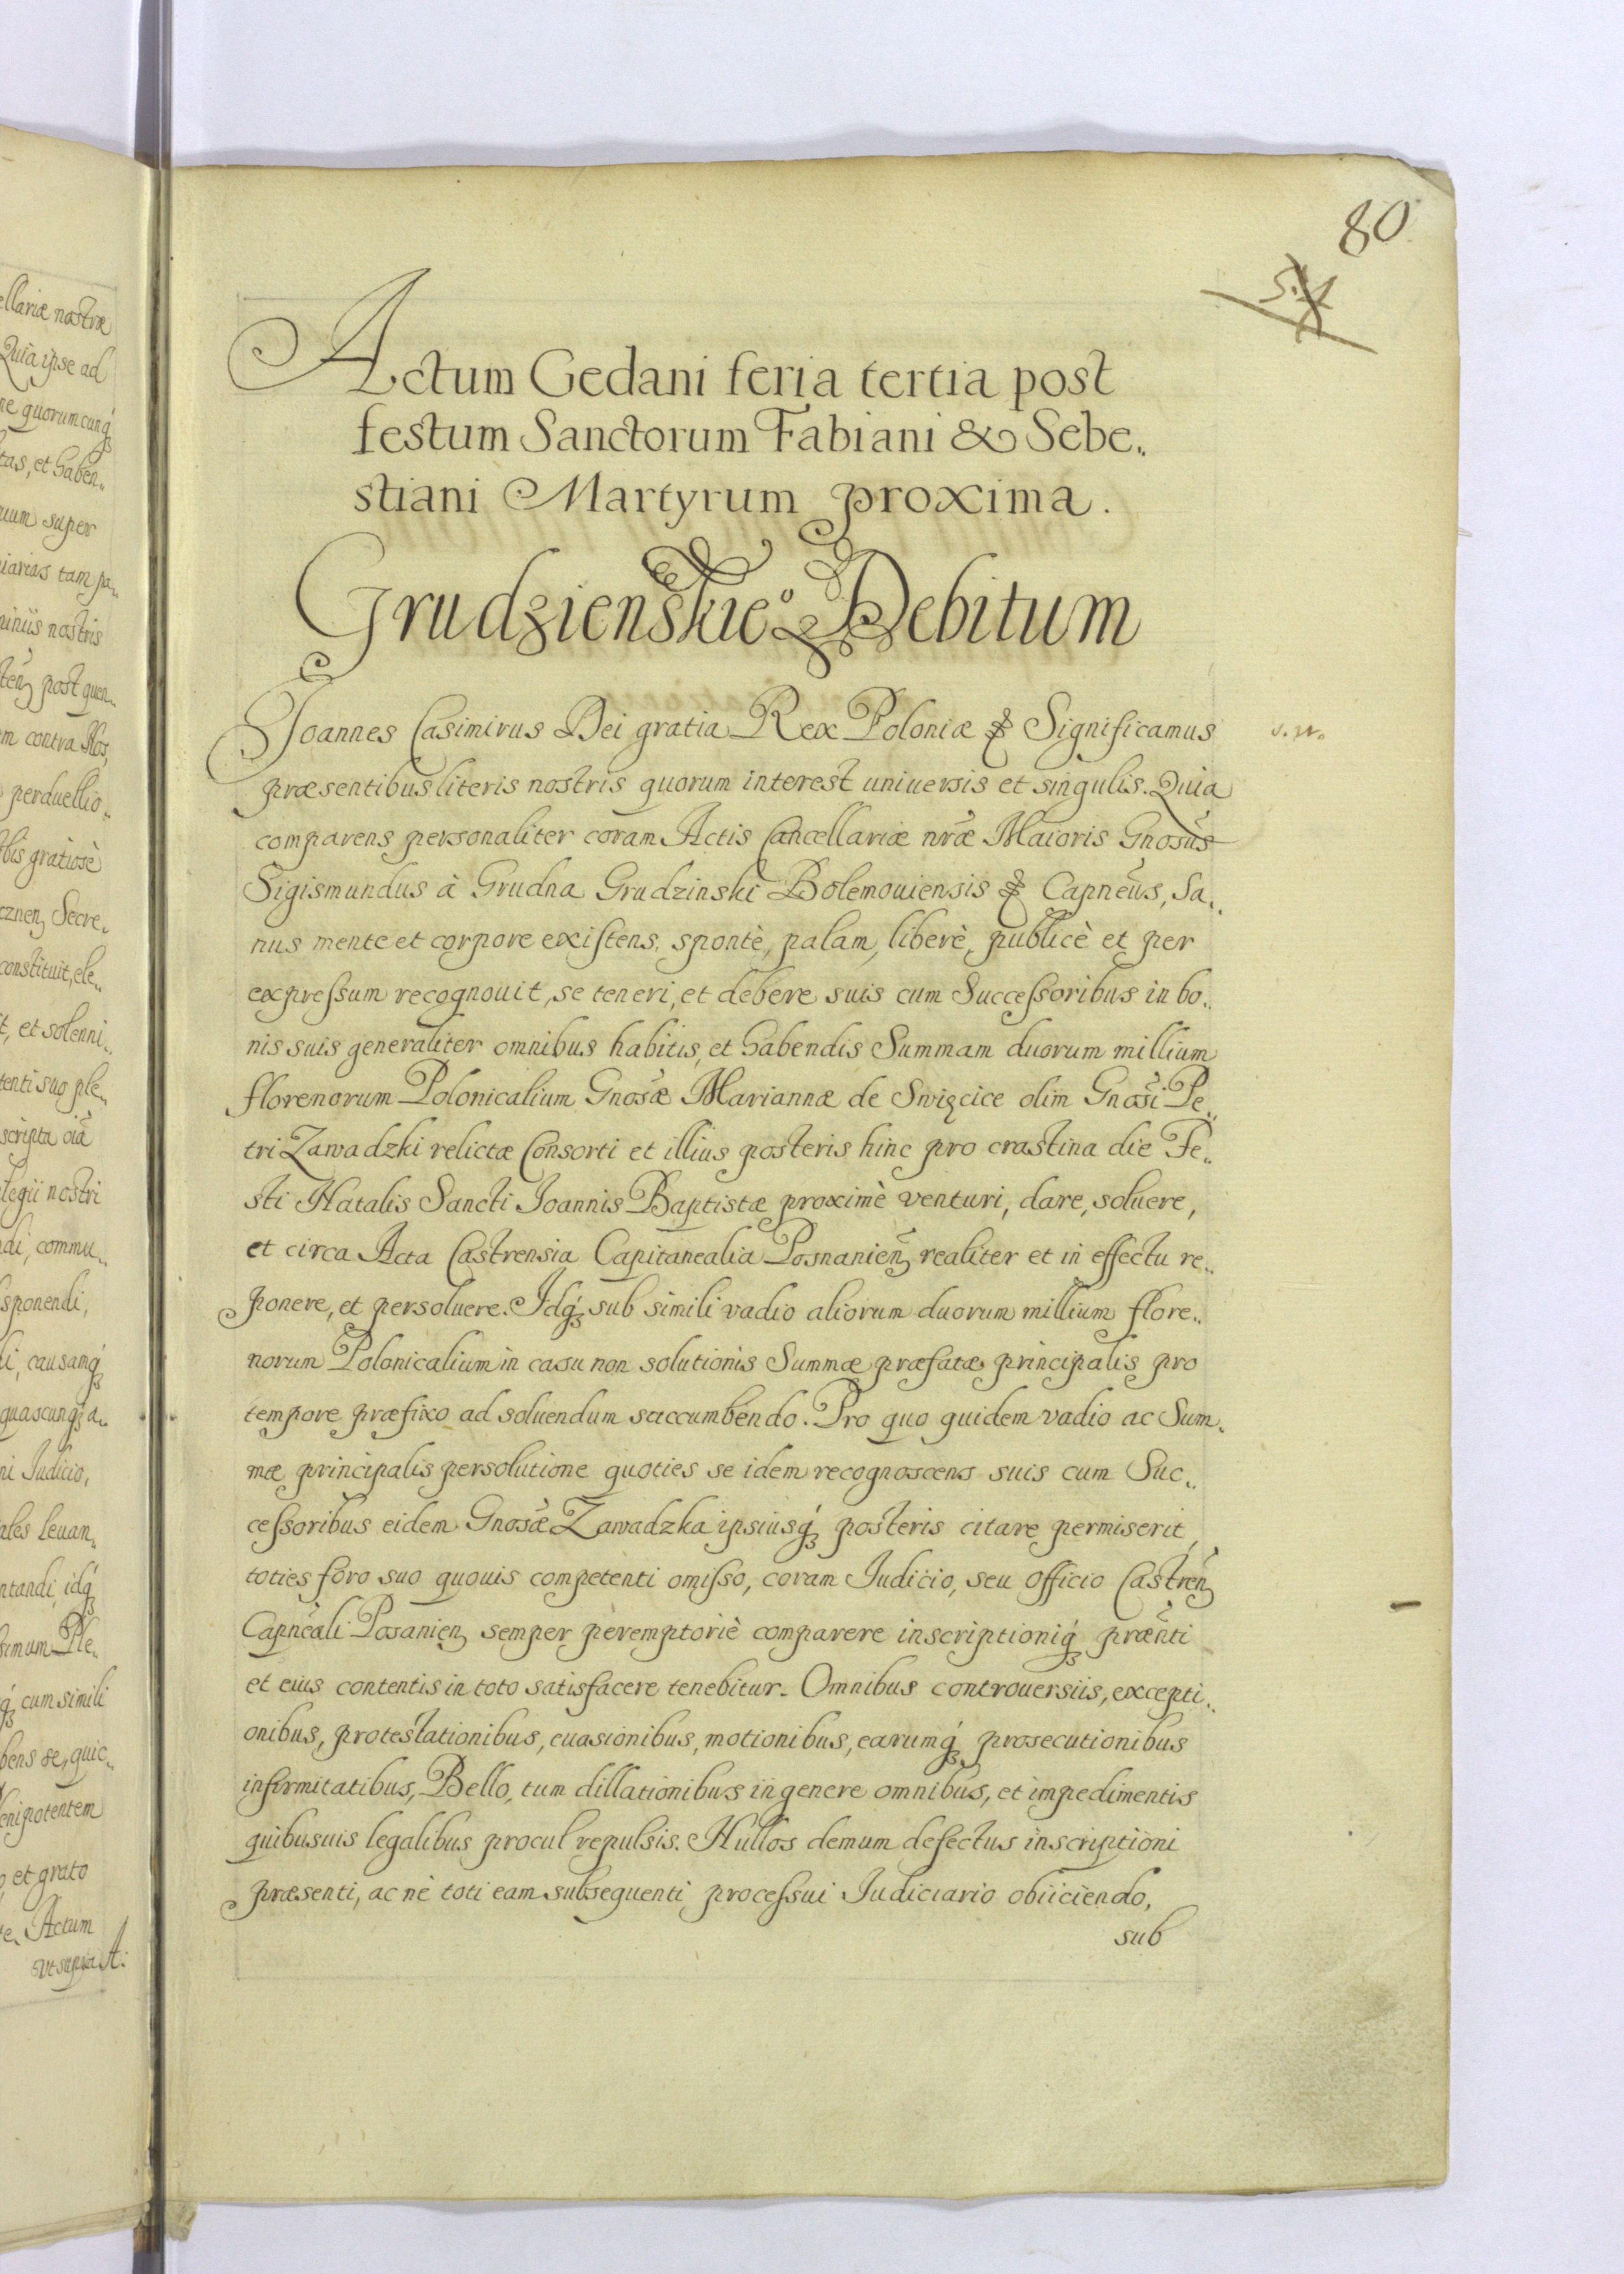 80
Actum Gedani feria tertia post
festum Sanctorum Fabiani & Sebe„
stiani Martyrum proxima.
Grudzienskieº Debitum
Joannes Casimirus Dei gratia Rex Poloniæ & Significamus
præsentibus literis nostris quorum interest uniuersis et singulis. Quia
comparens personaliter coram Actis Cancellariæ nr̃æ Maioris Gnosus̃
Sigismundus à Grudna Grudzinski Bolemouiensis & Capneus̃, Sa„
nus mente et corpore existens, spontè, palam, liberè, publicè et per
expressum recognouit, se teneri, et debere suis cum Successoribus in bo„
nis suis generaliter omnibus habitis, et habendis Summam duorum millium
florenorum Polonicalium Gnosæ̃ Mariannæ de Swięcice olim Gnosĩ Pe„
tri Zawadzki relictæ Consorti et illius posteris hinc pro crastina die Fe„
sti Natalis Sancti Joannis Baptistæ proximè venturi, dare, soluere,
et circa Acta Castrensia Capitanealia Posnanieñ realiter et in effectu re„
ponere, et persoluere. Idq́ʒ sub simili vadio aliorum duorum millium flore„
norum Polonicalium in casu non solutionis Summæ præfatæ principalis pro
tempore præfixo ad soluendum saccumbendo. Pro quo quidem vadio ac Sum„
mæ principalis persolutione quoties se idem recognoscens suis cum Suc„
cessoribus eidem Gnosæ̃ Zawadzka ipsiusq́ʒ posteris citare permiserit,
toties foro suo quouis competenti omisso, coram Iudicio, seu officio Castreñ
Capneãli Posanien̨ semper peremptoriè comparere inscriptioniq́ʒ præñti
et eius contentis in toto satisfacere tenebitur. Omnibus controuersiis, excepti„
onibus, protestationibus, euasionibus, motionibus, earumq́ʒ prosecutionibus
infirmitatibus, Bello, tum dillationibus in genere omnibus, et impedimentis
quibusuis legalibus procul repulsis. Nullos demum defectus inscriptioni
præsenti, ac nè toti eam subsequenti processui Iudiciario obiiciendo,
sub